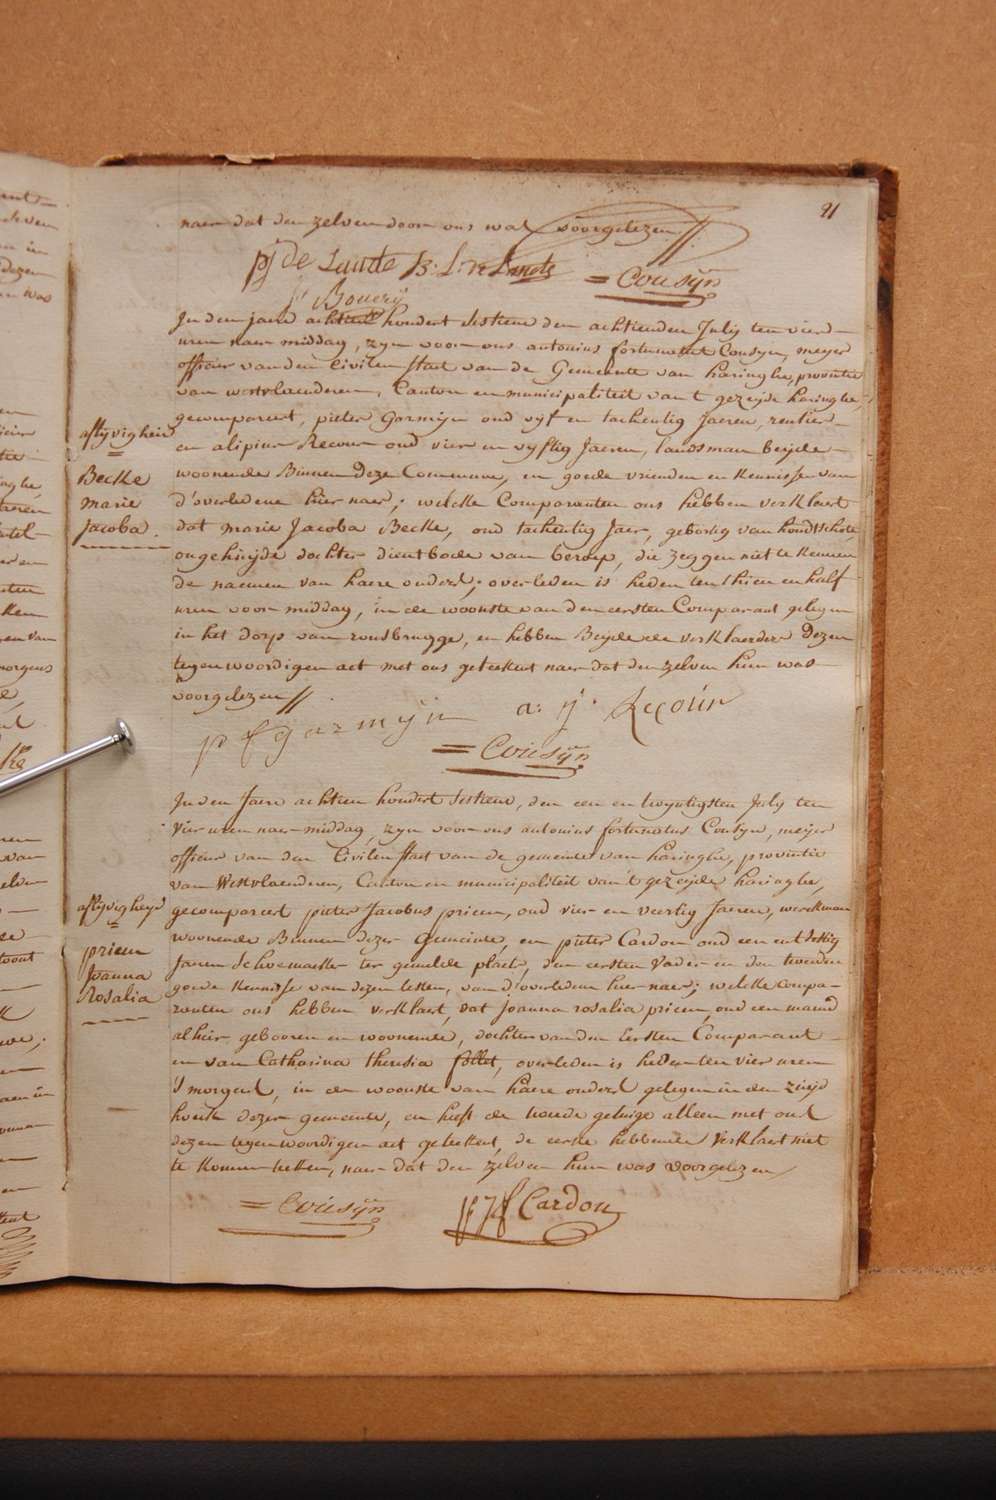 91
naer dat den zelven door ons was voorgelezen //
pj de Lande B: L: De Lande = Cousÿn
p Bouerÿ
In den jaere achtien hondert sestiene den achtienden July ten vier
uren naer middag, zyn voor ons antonius fortunatus Cousyn, meyer
officier van den Civilen staet van de Gemeente van haringhe, provintie
van westvlaenderen, Canton en municipaliteit van 't gezeyde haringhe,
gecompareert, pieter Garmijn oud vijf en tachentig Jaeren, rentier
en alipius Recour oud vier en vyftig Jaeren, landsman beyde
woonende Binnen deze Commune, en goede vrienden en kennisse van
d'overledene hier naer; welcke Comparanten ons hebben verklaert
dat marie Jacoba Becke, oud tachentig Jaer, geboortig van hondtschote,
ongehuyde dochter dientbode van beroep, die zeggen niet te kennen
de naemen van haere ouders; overleden is heden ten thien en half
uren voor middag, in de woonste van den eersten Comparant gelegen
in het dorp van rousbrugge, en hebben Beyde de verklaerders Dezen
tegenwoordigen act met ons geteekent naer dat den zelven hun was
voorgelezen //
aflyvigheid
Becke
marie
Jacoba.
p f garmÿn a: j: Recour
= Cousÿn
In den Jaere achtien hondert sestiene, den een en twyntigsten July ten
vier uren naer middag, zyn voor ons antonius fortunatus Cousyn, meijer
officier van den Civilen staet van de gemeente van haringhe, provintie
van Westvlaenderen, Canton en municipaliteit van 't gezeijde haringhe,
gecompareert pieter Jacobus priem, oud vier en veertig Jaeren, werckman
woonende Binnen dezer Gemeente, en pieter Cardon oud een en t'sestig
Jaeren schoemaeker ter gemelde plaets, den eersten vader en den tweeden
goede kennisse van dezen lesten, van d'overledene hier naer; welcke compa-
ranten ons hebben verklaert, dat joanna rosalia priem, oud een maend
alhier gebooren en woonende, dochter van den Eersten Comparant
en van Catharina theresia follet, overleden is heden ten vier uren
s'morgens, in de woonste van haere ouders gelegen in den zuijd
houck dezer gemeente, en heeft de tweede getuige alleen met ons
dezen tegenwoordigen act geteekent, de eerste hebbende verklaert niet
te konnen teeken, naer dat den zelven hun was voorgelezen /
aflÿvigheyd
priem
Joanna
Rosalia
= Cousÿn p j f Cardon